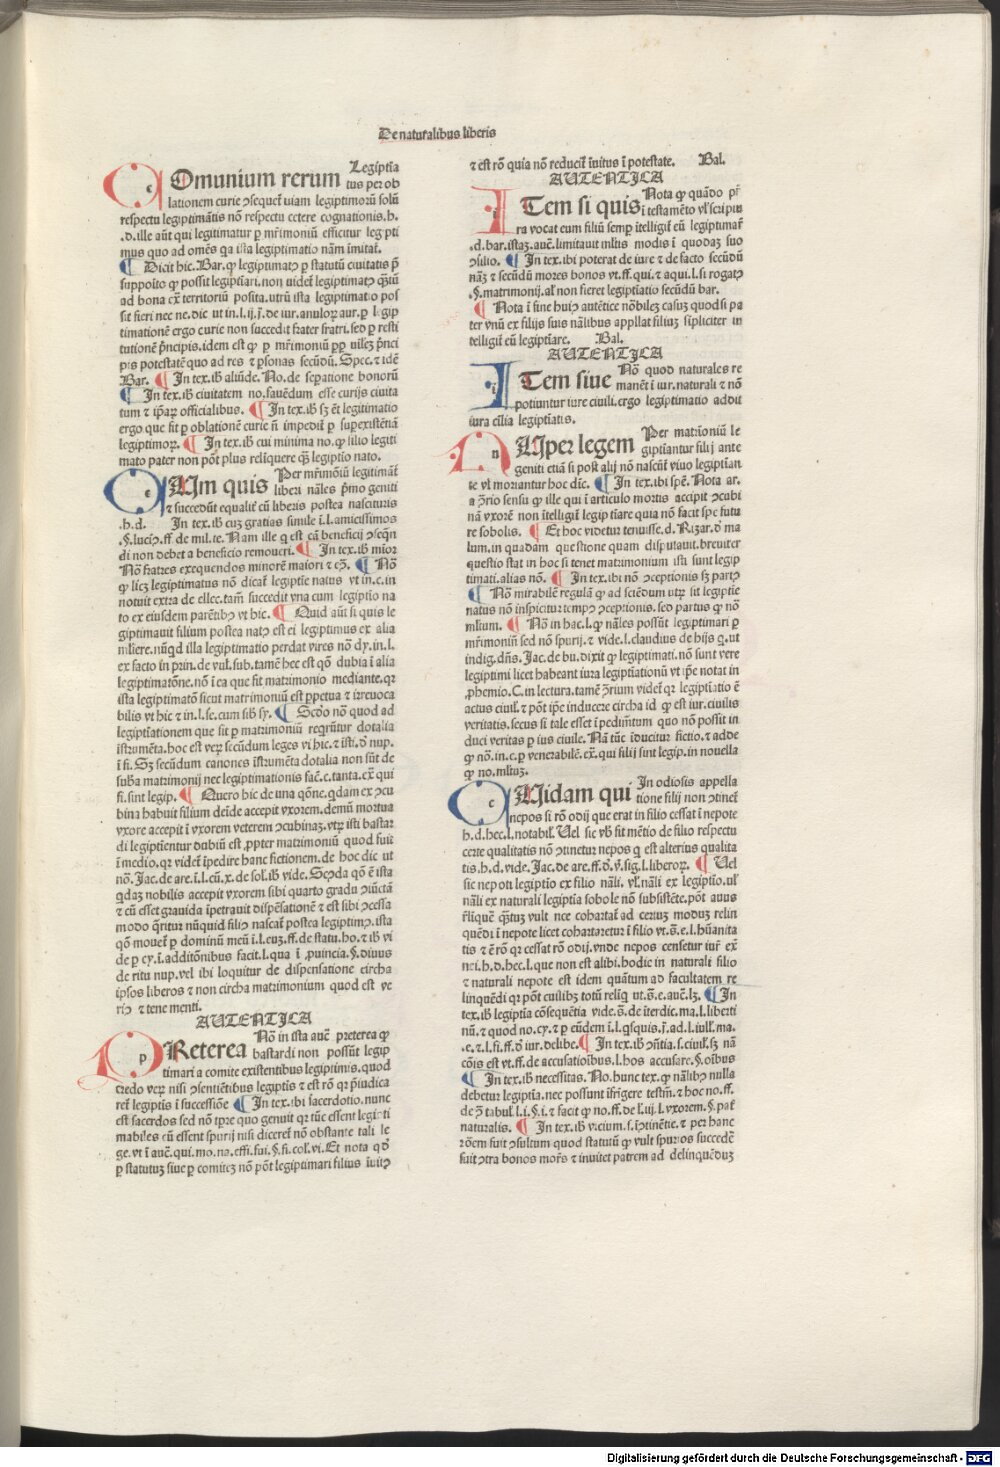 De naturalibus liberis
Omunium rerum Legiptīa
tus per ob
lationem curie ↄsequet̄ uiam legiptimorū solū
respectu legiptimātis nō respectu cetere cognationis.h.
.d.ille aūt qui legitimatur p mr̄imoniū efficitur leg pti
mus quo ad omēs qa ista legiptimatio nām imitat̄.
¶ Dicit hic.Bar.ꝙ legiptimatꝰ p statutū ciuitatis p̄
supposito ꝙ possit legiptīari.non uidet̄ legiptimatꝰ
ad bona extra territoriū posita.utrū ista legiptimatio pos
sit fieri nec ne.dic ut in.l.ij.
timationē ergo curie non succedit frater fratri.sed p resti
tutionē p̄ncipis.idem est ꝙ p mr̄imoniū
pis potestatē quo ad res ⁊ psonas secūdū.Spec.⁊ idē
Bar. ¶ In tex.ib̄ aliūde.No.de sepatione bonorū
¶ In tex.ib̄ ciuitatem no.fauēdum esse curijs ciuita
tum ⁊ ip̄aꝝ officialibus. ¶ In tex.ib̄ sꝫ ēt legitimatio
ergo que fit p oblationē curie nō impedit̄ p supexistētiā
legiptimoꝝ. ¶ In tex.ib̄ cui minima no.ꝙ filio legiti
mato pater non pōt plus reliquere qꝫ legiptio nato.
Um quis Per mr̄imōiū legitimāt̄
liberi nāles p̄mo geniti
⁊ succedūt equalit̄ cū liberis postea nascituris
.h.d. In tex.ib̄ cuꝫ gratias simile ī.l.amicissimos
.§.luciꝰ.ff de mil.te.Nam ille q est cā beneficij ↄseqn̄
di non debet a beneficio remoueri. ¶ In tex.ib̄ mior
Nō fratres exequendos minorē maiori ⁊ eↄ. ¶ Nō
ꝙ licꝫ legiptimatus nō dicat̄ legiptie natus vt in.c.in
notuit extra de ellec.tam̄ succedit vna cum legiptio na
to ex eiusdem parētibꝰ vt hic. ¶ Quid aūt si quis le
giptimauit filium postea natꝰ est ei legiptimus ex alia
mliere.nūqd illa legiptimatio perdat vires nō dy.in.l.
ex facto in prin.de vul.sub.tamē hec est qō dubia ī alia
legiptimatōne.nō ī ea que fit matrimonio mediante.qr
ista legiptimatō sicut matrimoniū est ppetua ⁊ irreuoca
bilis vt hic ⁊ in.l.se.cum sib̄ sy. ¶ Scdo nō quod ad
legiptīationem que fit p matrimoniū reqr̄untur dotalia
īstrumēta.hoc est verꝫ secūdum leges vi hic.⁊ īsti.d̄ nup.
ī fi.Sꝫ secūdum canones īstrumēta dotalia non sūt de
sub̄a matrimonij nec legiptimationis
fi.sint legip. ¶ Quero hic de una qōne.qdam ex ↄcu
bina habuit filium deīde accepit vxorem.demū mortua
vxore accepit ī vxorem veterem ↄcubinaꝫ.vtꝝ isti bastar
di legiptientur dubiū est.ꝓpter matrimoniū quod fuit
ī medio.qr videt̄ īpedire hanc fictionem.de hoc dic ut
nō.Jac.de are.ī.l.cū.x.de sol.ib̄ vide.Scda qō ē ista
qdaꝫ nobilis accepit vxorem sibi quarto gradu ↄiūctā
⁊ cū esset grauida īpetrauit dispēsationē ⁊ est sibi ↄcessa
modo qritur nūquid filiꝰ nascat̄ postea legiptimꝰ.ista
qō mouet̄ p dominū meū ī.l.euꝫ.ff.de statu.ho.⁊ ib̄ vi
de p cy.ī.additōnibus facit.l.qua ī ꝓuincia.§.diuus
de ritu nup.vel ibi loquitur de dispensatione circha
ipsos liberos ⁊ non circha matrimonium quod est ve
rū ⁊ tene menti.
AUTENTICA
Reterea Nō in ista auc̄ preterea ꝙ
bastardi non possūt legip
timari a comite existentibus legiptimis.quod
credo verꝫ nisi ↄsentiētibus legiptis ⁊ est rō qr p̄iudica
ret̄ legiptis ī successiōe ¶ In tex.ibi sacerdotio.nunc
est sacerdos sed nō tpre quo genuit qr tūc essent legiti
mabiles cū essent spurij nisi diceret̄ nō obstante tali le
ge.vt ī auc̄.qui.mo.na.effi.sui.§.fi.col.vi.Et nota qd̄
p statutuꝫ siue p comiteꝫ nō pōt legiptimari filius īuitꝰ
⁊ est rō quia nō reducit̄ īuitus ī potestate. Bal.
AUTENTICA
Tem si quis Nota ꝙ quādo pr̄
ī testamēto vl̄ scriptu
ra vocat eum filiū semp ītelligit̄ eū legiptimat̄
.d.bar.istaꝫ.auc̄.limitauit mltis modis ī quodaꝫ suo
ↄsilio. ¶ In tex.ibi poterat de iure ⁊ de facto secūdū
nāꝫ ⁊ secūdū mores bonos vt.ff.qui.⁊ a qui.l.si rogatꝰ
.§.matrimonij.al̄ non fieret legiptīatio secūdū bar.
¶ Nota ī fine huiꝰ autētice nōbileꝫ casuꝫ quod si pa
ter vnū ex filijs suis nālibus appllat filiuꝫ sīpliciter in
telligit̄ eū legiptīare. Bal.
AUTENTICA
Tem siue Nō quod naturales re
manēt ī iur.naturali ⁊ nō
potiuntur iure ciuili.ergo legiptimatio addit
iura ciuilia legiptīatis.
Uper legem Per matrīoniū le
giptiantur filij ante
geniti etiā si post alij nō nascūt̄ viuo legiptīan
te vl̄ moriantur hoc dīc. ¶ In tex.ibi spē.Nota ar.
a ↄ̄rio sensu ꝙ ille qui ī articulo mortis accipit ↄcubi
nā vxorē non ītelligit̄ legip tiare quia nō facit spe futu
re sobolis. ¶ Et hoc videtur tenuisse.d.Rizar.d̄ ma
lum.in quadam questione quam disputauit.breuiter
questio stat in hoc si tenet matrimonium isti sunt legip
timati.alias nō. ¶ In tex.ibi nō ↄceptionis sꝫ partꝰ
¶ Nō mirabilē regulā ꝙ ad sciēdum utꝝ sit legiptie
natus nō inspicitur tempꝰ ↄceptionis.sed partus ꝙ nō
mltum. ¶ Nō in hac.l.ꝙ nāles possūt legiptimari p
mr̄imoniū sed nō spurij.⁊ vide.l.claudius de hijs q.ut
indig.dn̄s.Jac.de bu.dixit ꝙ legiptimati.nō sunt vere
legiptimi licet habeant iura legiptīationū vt ip̄e notat in
ꝓhemio.C.in lectura.tamē ↄ̄rium videt̄ qr legiptīatio ē
actus ciuil̄.⁊ pōt ip̄e inducere circha id ꝙ est iur.ciuilis
veritatis.secus si tale esset īpedimētum quo nō possit in
duci veritas p ius ciuile.Nā tūc īducitur fictio.⁊ adde
ꝙ nō.in.c.p venerabilē.ex̄.qui filij sint legip.in nouella
ꝙ no.mltuꝫ.
Uidam qui In odiosis appella
tione filij non ↄtinet̄
nepos si rō odij que erat in filio cessat ī nepote
h.d.hec.l.notabil̄.Uel sic vb̄ fit mētio de filio respectu
certe qualitatis nō ↄtinetur nepos q est alterius qualita
tis.h.d.vide.Jac.de are.ff.d̄.v̄.sig.l.liberoꝝ. ¶ Uel
sic nepoti legiptio ex filio nāli.vl̄.nāli ex legiptio.ul̄
nāli ex naturali legiptīa sobole nō subsistēte.pōt auus
r̄liquē qꝫtuꝫ vult nec cohartat̄ ad certuꝫ moduꝫ relin
quēdi ī nepote licet cohartaretur ī filio vt.s̄.e.l.hūanita
tis ⁊ ē rō qr cessat rō odij.vnde nepos censetur iur̄ ex̄
nei.h.d.hec.l.que non est alibi.hodie in naturali filio
⁊ naturali nepote est idem quātum ad facultatem re
linquēdi qr pōt cuilibꝫ totū relīq̄ ut.s̄.e.auc̄.lꝫ. ¶ In
tex.ib̄ legiptīa cōsequētia vide.s̄.de īterdic.ma.l.liberti
nū.⁊ quod no.cy.⁊ p eūdem ī.l.qsquis.
.e.⁊ l.fi.ff.d̄ iur.delibe. ¶ In tex.ib̄ pn̄tia.s.ciuil̄.sꝫ nā
cōis est vt.ff.de accusatiōibus.l.hos accusare.§.oībus
¶ In tex.ib̄ necessitas.No.hunc tex.ꝙ nālibꝰ nulla
debetur legiptīa.nec possunt īfrīgere testm̄.⁊ hoc no.ff.
de ↄ̄ tabul̄.l.i.§.i.⁊ facit ꝙ no.ff.de l.iij.l.vxorem.§.pat̄
naturalis. ¶ In tex.ib̄ vicium.s.īↄtinētie.⁊ per hanc
rōem fuit ↄsultum quod statutū ꝙ vult spurios succedē
fuit ↄtra bonos mor̄s ⁊ inuitet patrem ad delinquēduꝫ
Digitalisierung gefördert durch die Deutsche Forschungsgemeinschaft - DFG